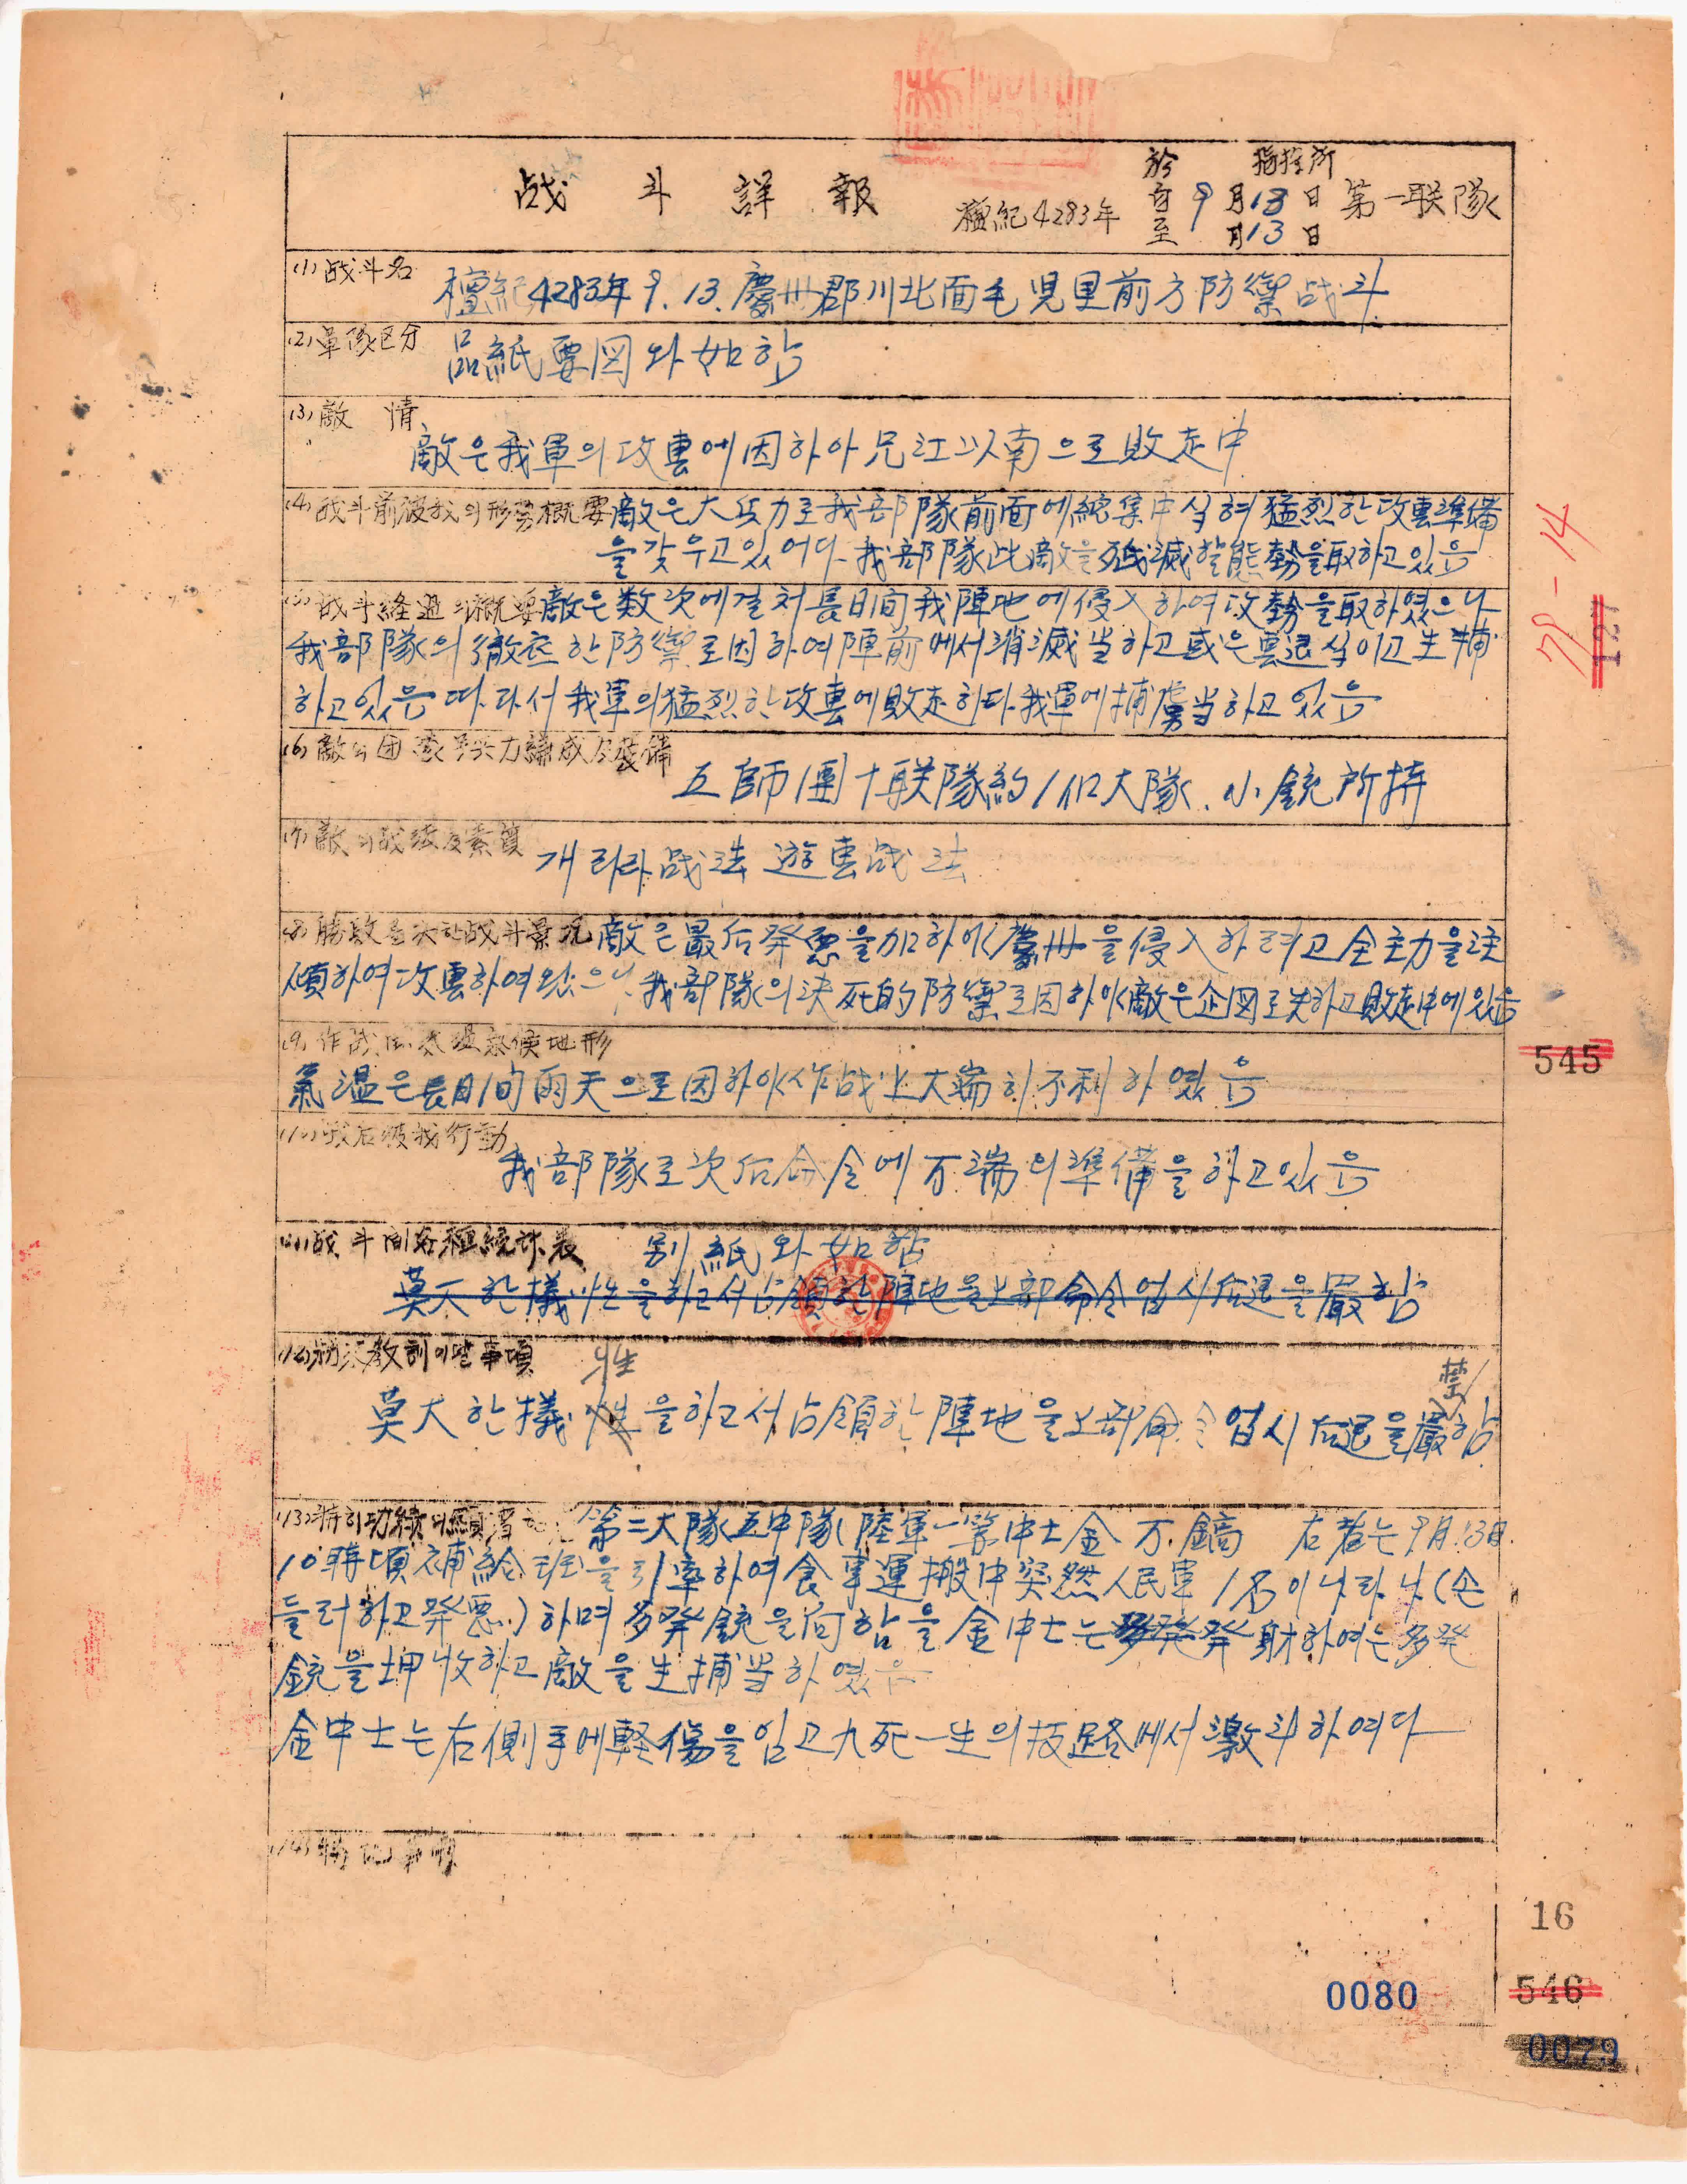 战斗詳報
檀紀4283年 自9月13日 至 月13日
於 指揮所
第一联隊
(1)战斗名
檀紀4283年 9.13. 慶州郡川北面毛児里前方防禦战斗
(2)軍隊区分
品紙要図와如함
(3)敵 情
敵은我軍의攻훈에因하야兄江以南으로敗走中
(4)战斗前彼我의形势概要 敵은大兵力로我部隊前面에縮集中식혀猛烈한攻훈準備
을갖우고있어다 我部隊此敵을殲滅할態勢을取하고있음
战斗経過의概要 敵은数次에걸처長日间我陣地에侵入하여攻勢을取하였으나
我部隊의徹底한防禦로因하여陣前에서消滅当하고或은훈退식이고生捕
하고있음 따라서我軍의猛烈한攻훈에敗走하다我軍에捕虜当하고있음
五師団十联隊約1個大隊.小銃所持
(7)敵의战法及素質 개리라战法遊훈战法
(8)勝敗을決한战斗景況 敵은最后発悪을加하여慶州을侵入하려고全主力을注
傾하여攻훈하여왔으나 我部隊의決死的防禦로因하여敵은企図로失하고敗走中에있음
氣温은長日间雨天으로因하여作战上大端히不利하였음
(10)战后彼我行動
我部隊로次后命令에万端의準備을하고있음
(11)战斗间各種統計表 別紙와如함
莫大한犠性을하고서占領한陣地을上部命令업시后退을嚴함
教訓이될事項
牲 禁
莫大한犠性을하고서占領한陣地을上部命令업시后退을嚴함
(13)特히功績이顕著 第二大隊五中隊陸軍一等中士金万鎬 右者는9月13日
10時頃補給班을引率하여食事運搬中突然人民軍1名이나타나(손
들러하고発悪)하며多発銃을向함을金中士는多発発射하여는多発
銃을押收하고敵을生捕当하였음
金中士는右側手에軽傷을입고九死一生의技路에서激斗하여다
(14)特記事項
79-14
127
545
16
0080
546
0079